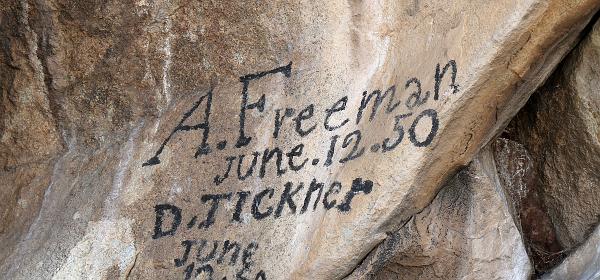 A. Freeman
June.12.50
D. TICKner
June
12.50